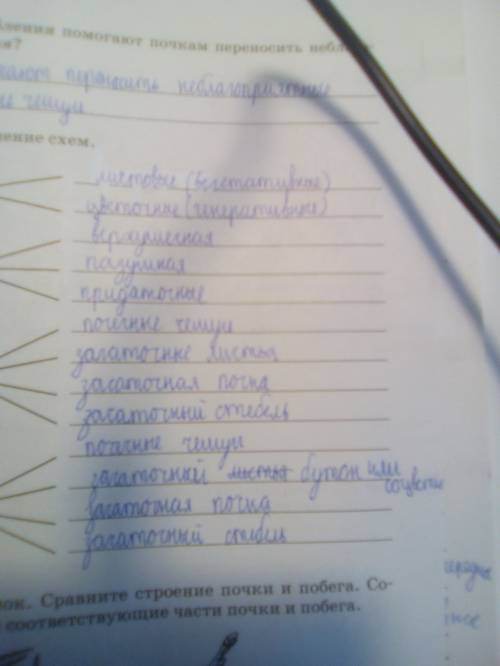 помогают почкам переносить
переносить неблагоприятные
чешуи
схем.
листовые (вегетативные)
цветочные (генеративные)
верхушечная
пазушная
придаточные
почечные чешуи
зачаточные листья
зачаточная почка
зачаточный стебель
почечные чешуи
зачаточный бутон или
соцветие
зачаточная почка
зачаточный стебель
Сравните строение почки и побега. Со-
соответствующие части почки и побега.